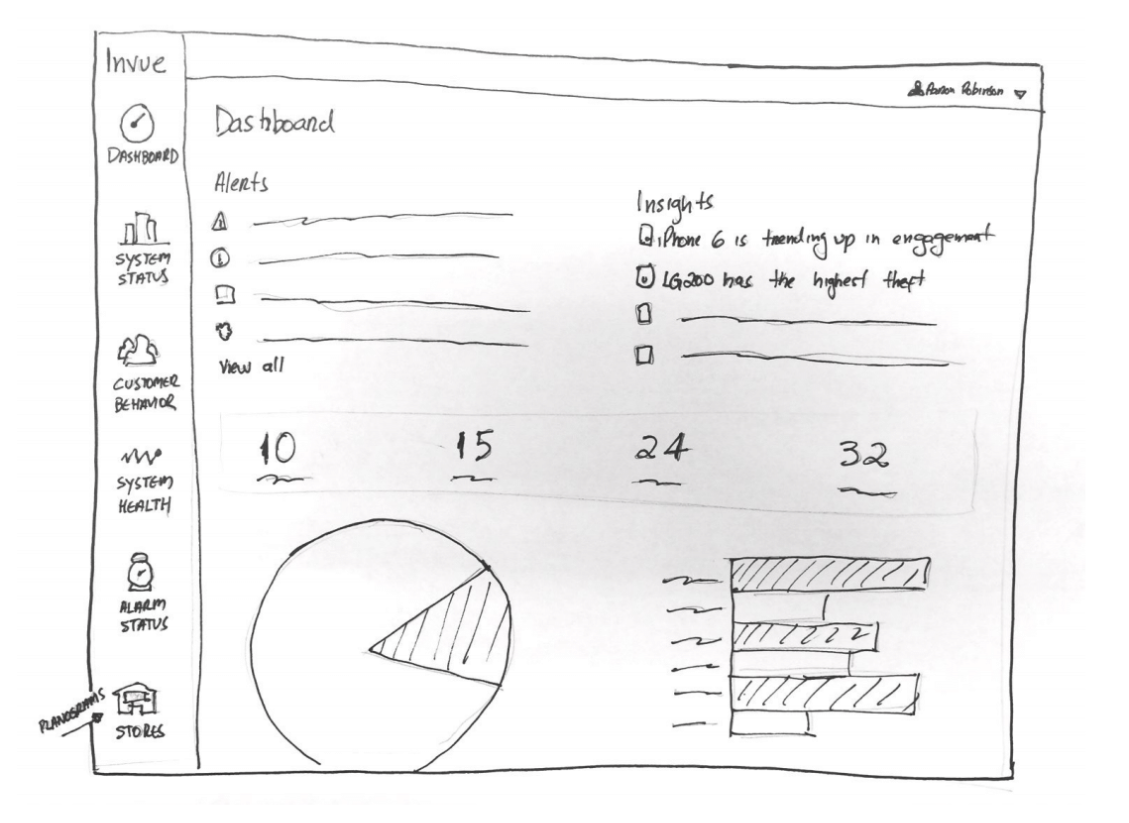 Invue
Robinson
DASHBOARD
SYSTEM
STATUS
CUSTOMER
BEHAVIOR
SYSTEM
HEALTH
ALARM
STATUS
PLANOGRAMS
STORES
Dashboard
Alerts
View all
Insights
iPhone 6 is trending up in engagement
LG200 has the highest theft
10
15
24
32